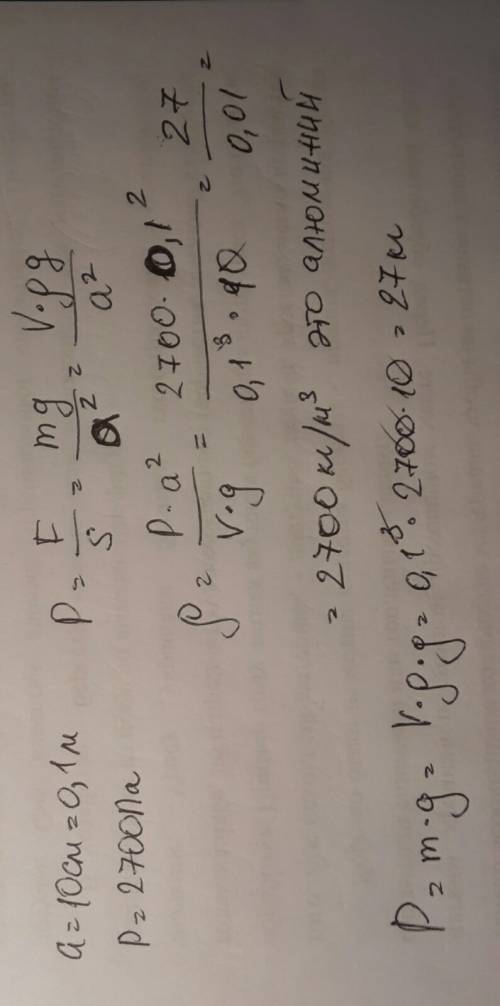 a = 10см = 0,1м
P = 2700Па
P = F/S = mg/a² = V·ρg/a²
ρ = P·a²/V·g = 2700·0,1²/0,1³·10 = 27/0,01 =
= 2700 кг/м³ это алюминий
P = m·g = V·ρ·g = 0,1³·2700·10 = 27н